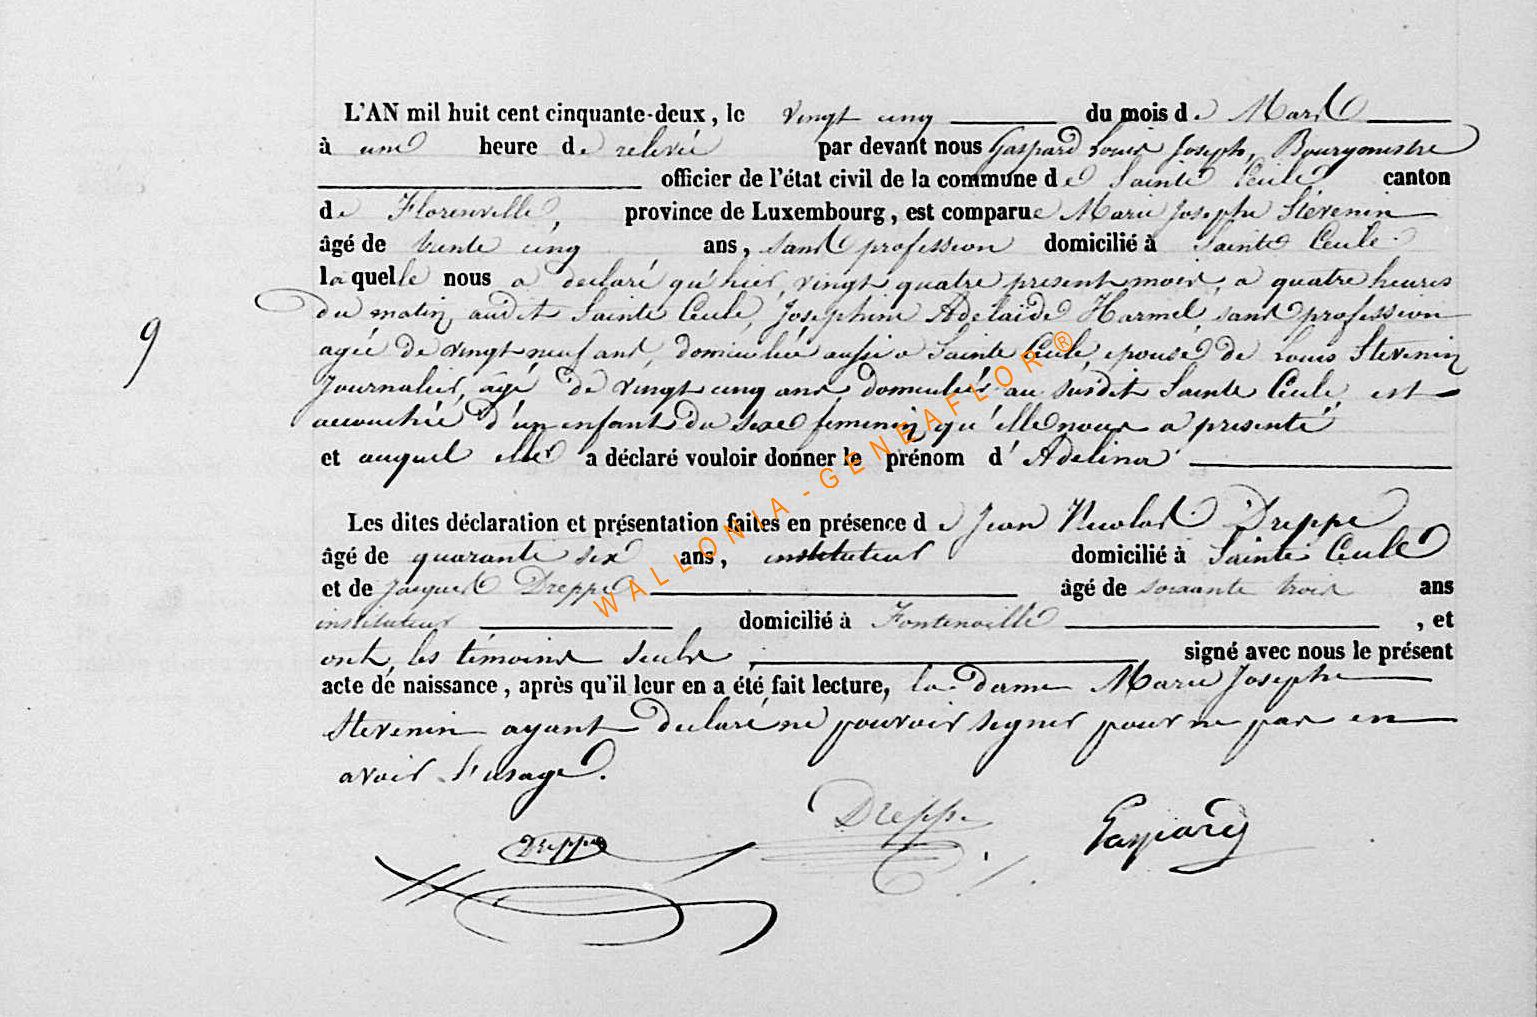 L'AN mil huit cent cinquante-deux, le vingt cinq du mois de Mars
à une heure de relevée par devant nous Gaspard Louis Joseph, Bourgmestre
officier de l'état civil de la commune de Sainte Cécile canton
de Florenville, province de Luxembourg, est comparue Marie Josephe Stevenin
âgé de trente cinq ans, sans profession domicilié à Sainte Cécile
laquelle nous a declaré qu'hier, vingt quatre present mois, a quatre heures
du matin, audit Sainte Cecile, Josephine Adelaïde Harmel, sans profession
agée de vingt neuf ans, domiciliée aussi a Sainte Cecile, epouse de Louis Stevenin
Journalier, âgé de vingt cinq ans domicilié au susdit Sainte Cecile, est
accouchée d'un enfant du sexe feminin, qu'elle nous a presenté
et auquel elle a déclaré vouloir donner le prénom d'Adelina
9
Les dites déclaration et présentation faites en présence de Jean Nicolas Dreppe
âgé de quarante six ans, instituteur domicilié à Sainte Cecile
et de Jacques Dreppe âgé de soixante trois ans
instituteur domicilié à Fontenoille, et
ont, les témoins seuls signé avec nous le présent
acte de naissance, après qu'il leur en a été fait lecture, la dame Marie Josephe
Stevenin ayant declaré ne pouvoir signer pour ne pas en
avoir l'usage.
Dreppe Dreppe Gaspard
WALLONIA - GENEAFLOR ®